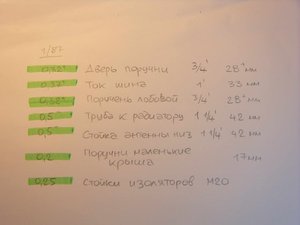 1/87
0,32 Дверь поручни 3/4' 28 мм
0,37 Ток шина 1' 33 мм
0,32 Поручень лобовой 3/4' 28 мм
0,5 Труба к радиатору 1 1/4' 42 мм
0,5 Стойка антенны низ 1 1/4' 42 мм
0,2 Поручни маленькие крыша 17 мм
0,25 Стойки изоляторов М20